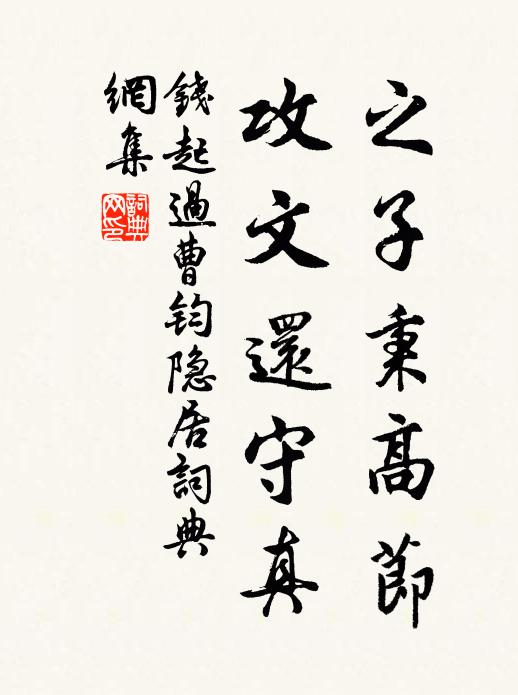 之子秉高節
攻文還守真
錢起過曹鈞隐居詞典
網集
詞典
网印